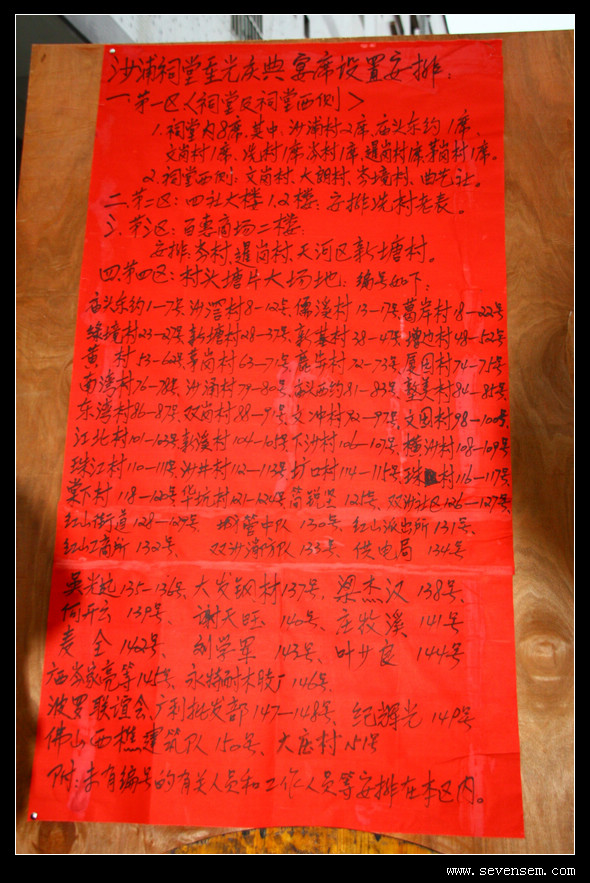 沙浦祠堂重光庆典宴席设置安排:
一.第一区<祠堂及祠堂西侧>
1.祠堂内8席,其中,沙浦村2席,庙头东约1席,
文岗村1席,冼村1席岑村1席,暹岗村1席,茅岗村1席。
2.祠堂西侧:文岗村、大朗村、岑境村、曲艺社。
二.第二区:四社大楼1.2楼:安排冼村老表。
三.第三区:百惠商场二楼:
安排:岑村,暹岗村、天河区新塘村。
四.第四区:村头塘片大场地:编号如下:
庙头东约1—7号沙滘村8—12号儒溪村13—17号葛岸村18—22号
绿境村23—27号新塘村28—37号新基村38—47号增边村48—52号
黄 村53—62号茅岗村63—71号鹿步村72—73号厦园村74—75号
南湾村76—78号沙涌村79—80号 81—83号 84—85号
东湾村86—87号双岗村88—91号文冲村92—97号文园村98—100号
江北村101—103号新溪村104—105号下沙村106—107号横沙村108—109号
珠江村110—111号沙井村112—113号圹口村114—115号珠村116—117号
棠下村118—120号华坑村121—124号简锐坚125号、双沙社区126—127号
红山街道128—129号 城管中队130号、红山派出所131号、
红山工商所132号、 双沙消防队133号、供电局134号
吴光 135—136号、大发钢材137号、梁杰汉138号、
何开云139号、 谢天旺140号、庄牧溪141号
麦全142号、 刘学军143号、叶少良144号
岑家亮等145号、永特耐木胶厂146号、
波罗联谊会、广利批发部147—148号、纪辉光149号
佛山西樵建筑队150号、大庄村151号
附:未有编号的有关人员和工作人员等安排在本区内。
www.sevensem.com